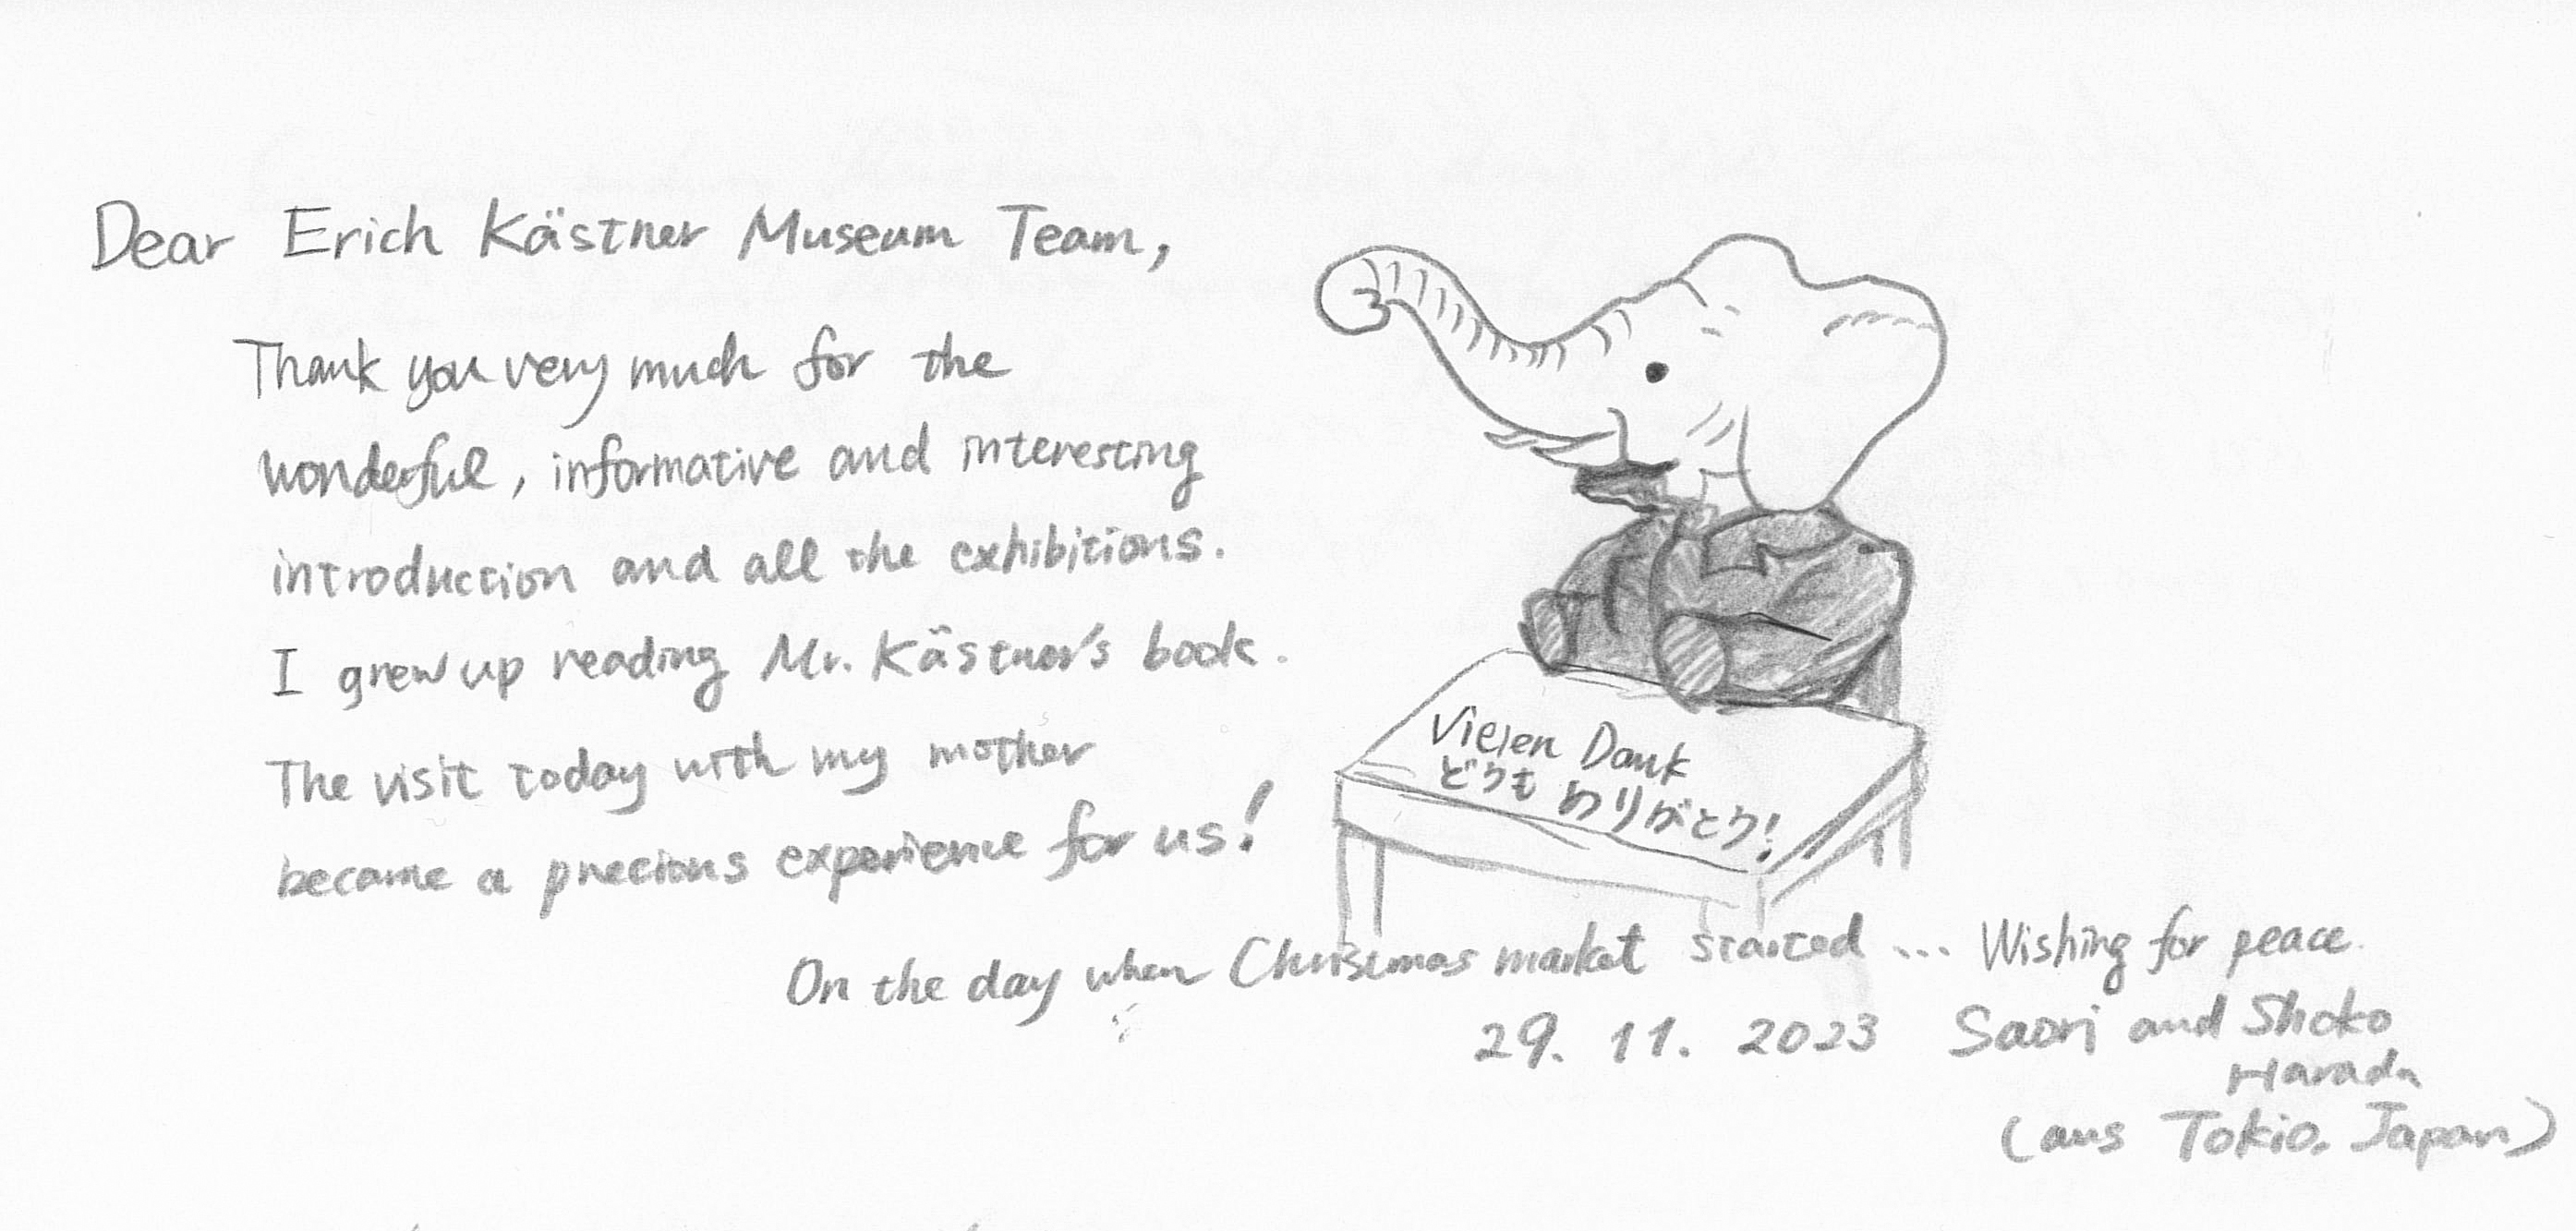 Dear Erich Kästner Museum Team,
Thank you very much for the
wonderful, informative and interesting
introduction and all the exhibitions.
I grew up reading Mr. Kästner's book.
The visit today with my mother
became a precious experience for us!
Vielen Dank
どうも ありがとう!
On the day when Christmas market started ... Wishing for peace.
29. 11. 2023 Saori and Shoko
Harada
(aus Tokio. Japan)